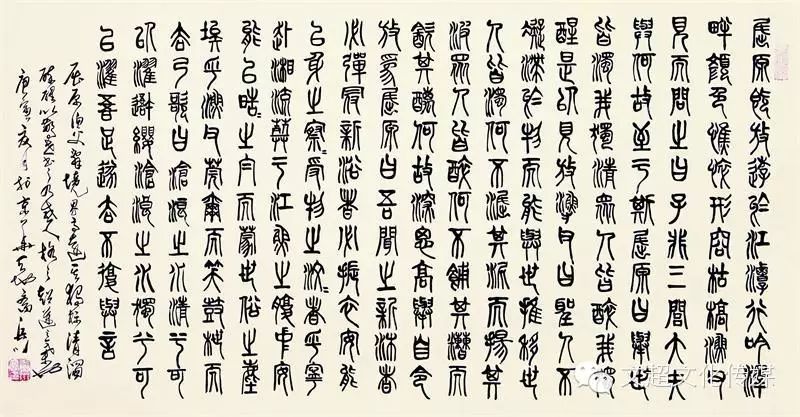 屈原既放遊於江潭行吟澤
畔顏色憔悴形容枯槁漁父
見而問之曰子非三閭大夫
與何故至于斯屈原曰舉世
皆濁我獨清眾人皆醉我獨
醒是以見放漁父曰聖人不
凝滯於物而能與世推移世
人皆濁何不淈其泥而揚其
波眾人皆醉何不餔其糟而
歠其醨何故深思高舉自令
放為屈原曰吾聞之新沐者
必彈冠新浴者必振衣安能
以身之察〻受物之汶〻者乎寧
赴湘流葬于江魚之腹中安
能以皓〻之白而蒙世俗之塵
埃乎漁父莞爾而笑鼓枻而
去乃歌曰滄浪之水清兮可
以濯吾纓滄浪之水濁兮可
以濯吾足遂去不復與言
屈原漁父辭境界高遠其獨標清濁
醉醒以
文超文化传媒